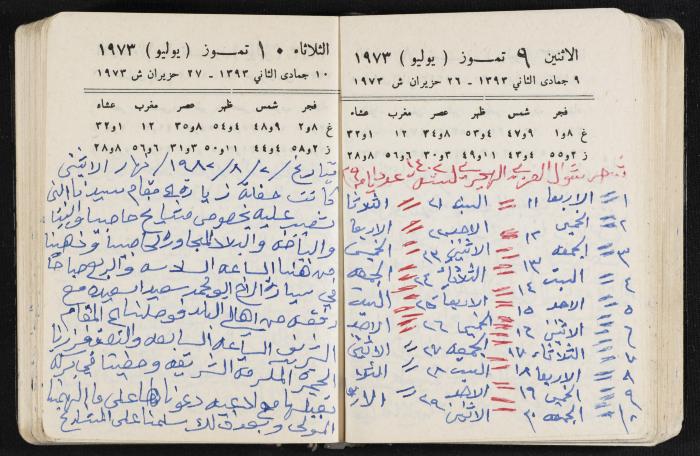 الاثنين ٩ تمـوز ( يوليو ) ١٩٧٣
٩ جمادى الثاني ١٣٩٣ ـ ٢٦ حزيران ش ١٩٧٣
فجر شمس ظهر عصر مغرب عشاء
غ ٨و١ ٩و٤٧ ٤و٥٣ ٨و٣٤ ١٢ ١و٣٢
ز ٢و٥٥ ٤و٤٣ ١١و٤٩ ٣و٣٠ ٦و٥٦ ٨و٢٨
شهر شوال العربي الهجري لسنة ١٤٠٢
١ الاربعا ١١ السبت ٢١ الثلاثا
٢ الخميس ١٢ الاحد ٢٢ الاربعا
٣ الجمعه ١٣ الاثنين ٢٣ الخميس
٤ السبت ١٤ الثلاثاء ٢٤ الجمعه
٥ الاحد ١٥ الاربعا ٢٥ السبت
٦ الاثنين ١٦ الخميس ٢٦ الاحد
٧ الثلاثاء ١٧ الجمعه ٢٧ الاثنين
٨ الاربعا ١٨ السبت ٢٨ الثلاثا
٩ الخميس ١٩ الاحد ٢٩
١٠ الجمعه ٢٠ الاثنين
الثلاثاء ١٠ تمـوز ( يوليو ) ١٩٧٣
١٠ جمادى الثاني ١٣٩٣ ـ ٢٧ حزيران ش ١٩٧٣
فجر شمس ظهر عصر مغرب عشاء
غ ٨و٢ ٩و٤٨ ٤و٥٤ ٨و٣٥ ١٢ ١و٣٢
ز ٢و٥٨ ٤و٤٤ ١١و٥٠ ٣و٣١ ٦و٥٦ ٨و٢٨
بتاريخ ٢/ ٨/ ١٩٨٢/ نهار الاثنين
كانت حفلة زياره مقام سيدنا النبي
شعيب عليه بخصوص مشايخ حاصبيا والبقاع
والبلاد المجاوره وذهبنا
من هنا الساعه السادسه والربع صباحا
في سيارة الاخ ابو محمد سعيد مع
رفقه من اهالي البلد فوصلنا الى المقام
الشريف الساعه السابعه والنصف فزرنا
الحجرة المكرمة الشريفه وحضينا في بركة
تقبيلها مع ادعيه دعوناها على ما الهمنا
المولى وبعد ذلك سلمنا على المشايخ